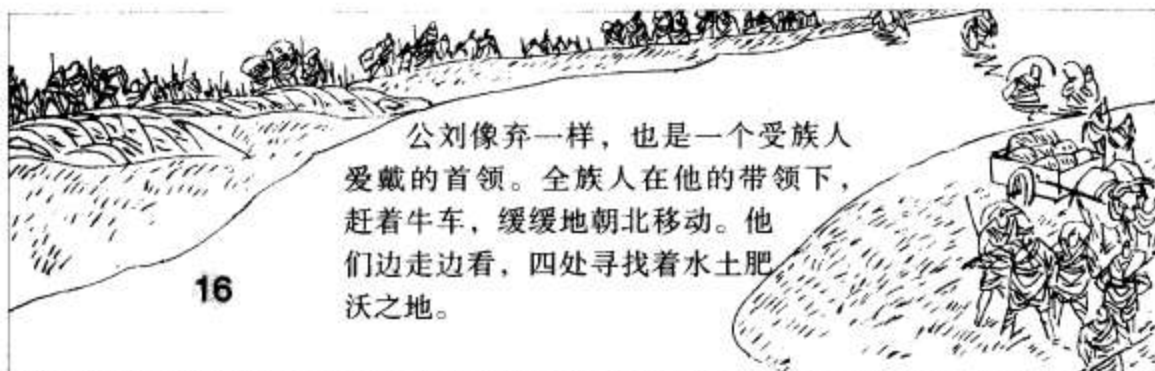 公刘像弃一样，也是一个受族人
爱戴的首领。全族人在他的带领下，
赶着牛车，缓缓地朝北移动。他
们边走边看，四处寻找着水土肥
沃之地。
16